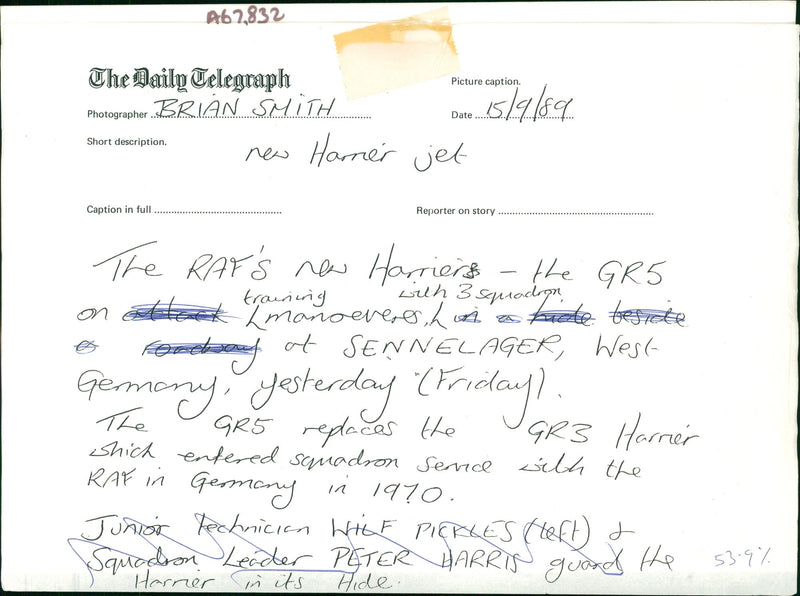 A67,832
The Daily Telegraph
Picture caption.
Photographer BRIAN SMITH
Date 15/9/89
Short description.
new Harrier jet
Caption in full
Reporter on story
The RAF'S new Harriers – the GR5
training with 3 squadron,
on attack manoeveres, in a hide beside
a roadway at SENNELAGER, West
Germany, yesterday (Friday).
The GR5 replaces the GR3 Harrier
which entered squadron service with the
RAF in Germany in 1970.
Junior technician WILF PICKLES (left) &
Squadron Leader PETER HARRIS guard the
53.9%
Harrier in its Hide.